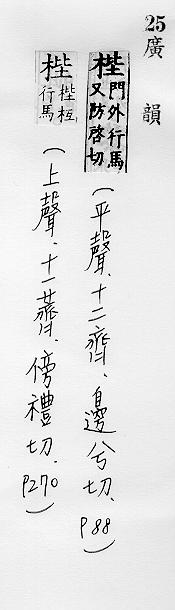 25廣韻
梐門外行馬又防啓切(平聲、十二齊、邊兮切、P88)
梐梐枑行馬(上聲、十一薺、傍禮切、P270)